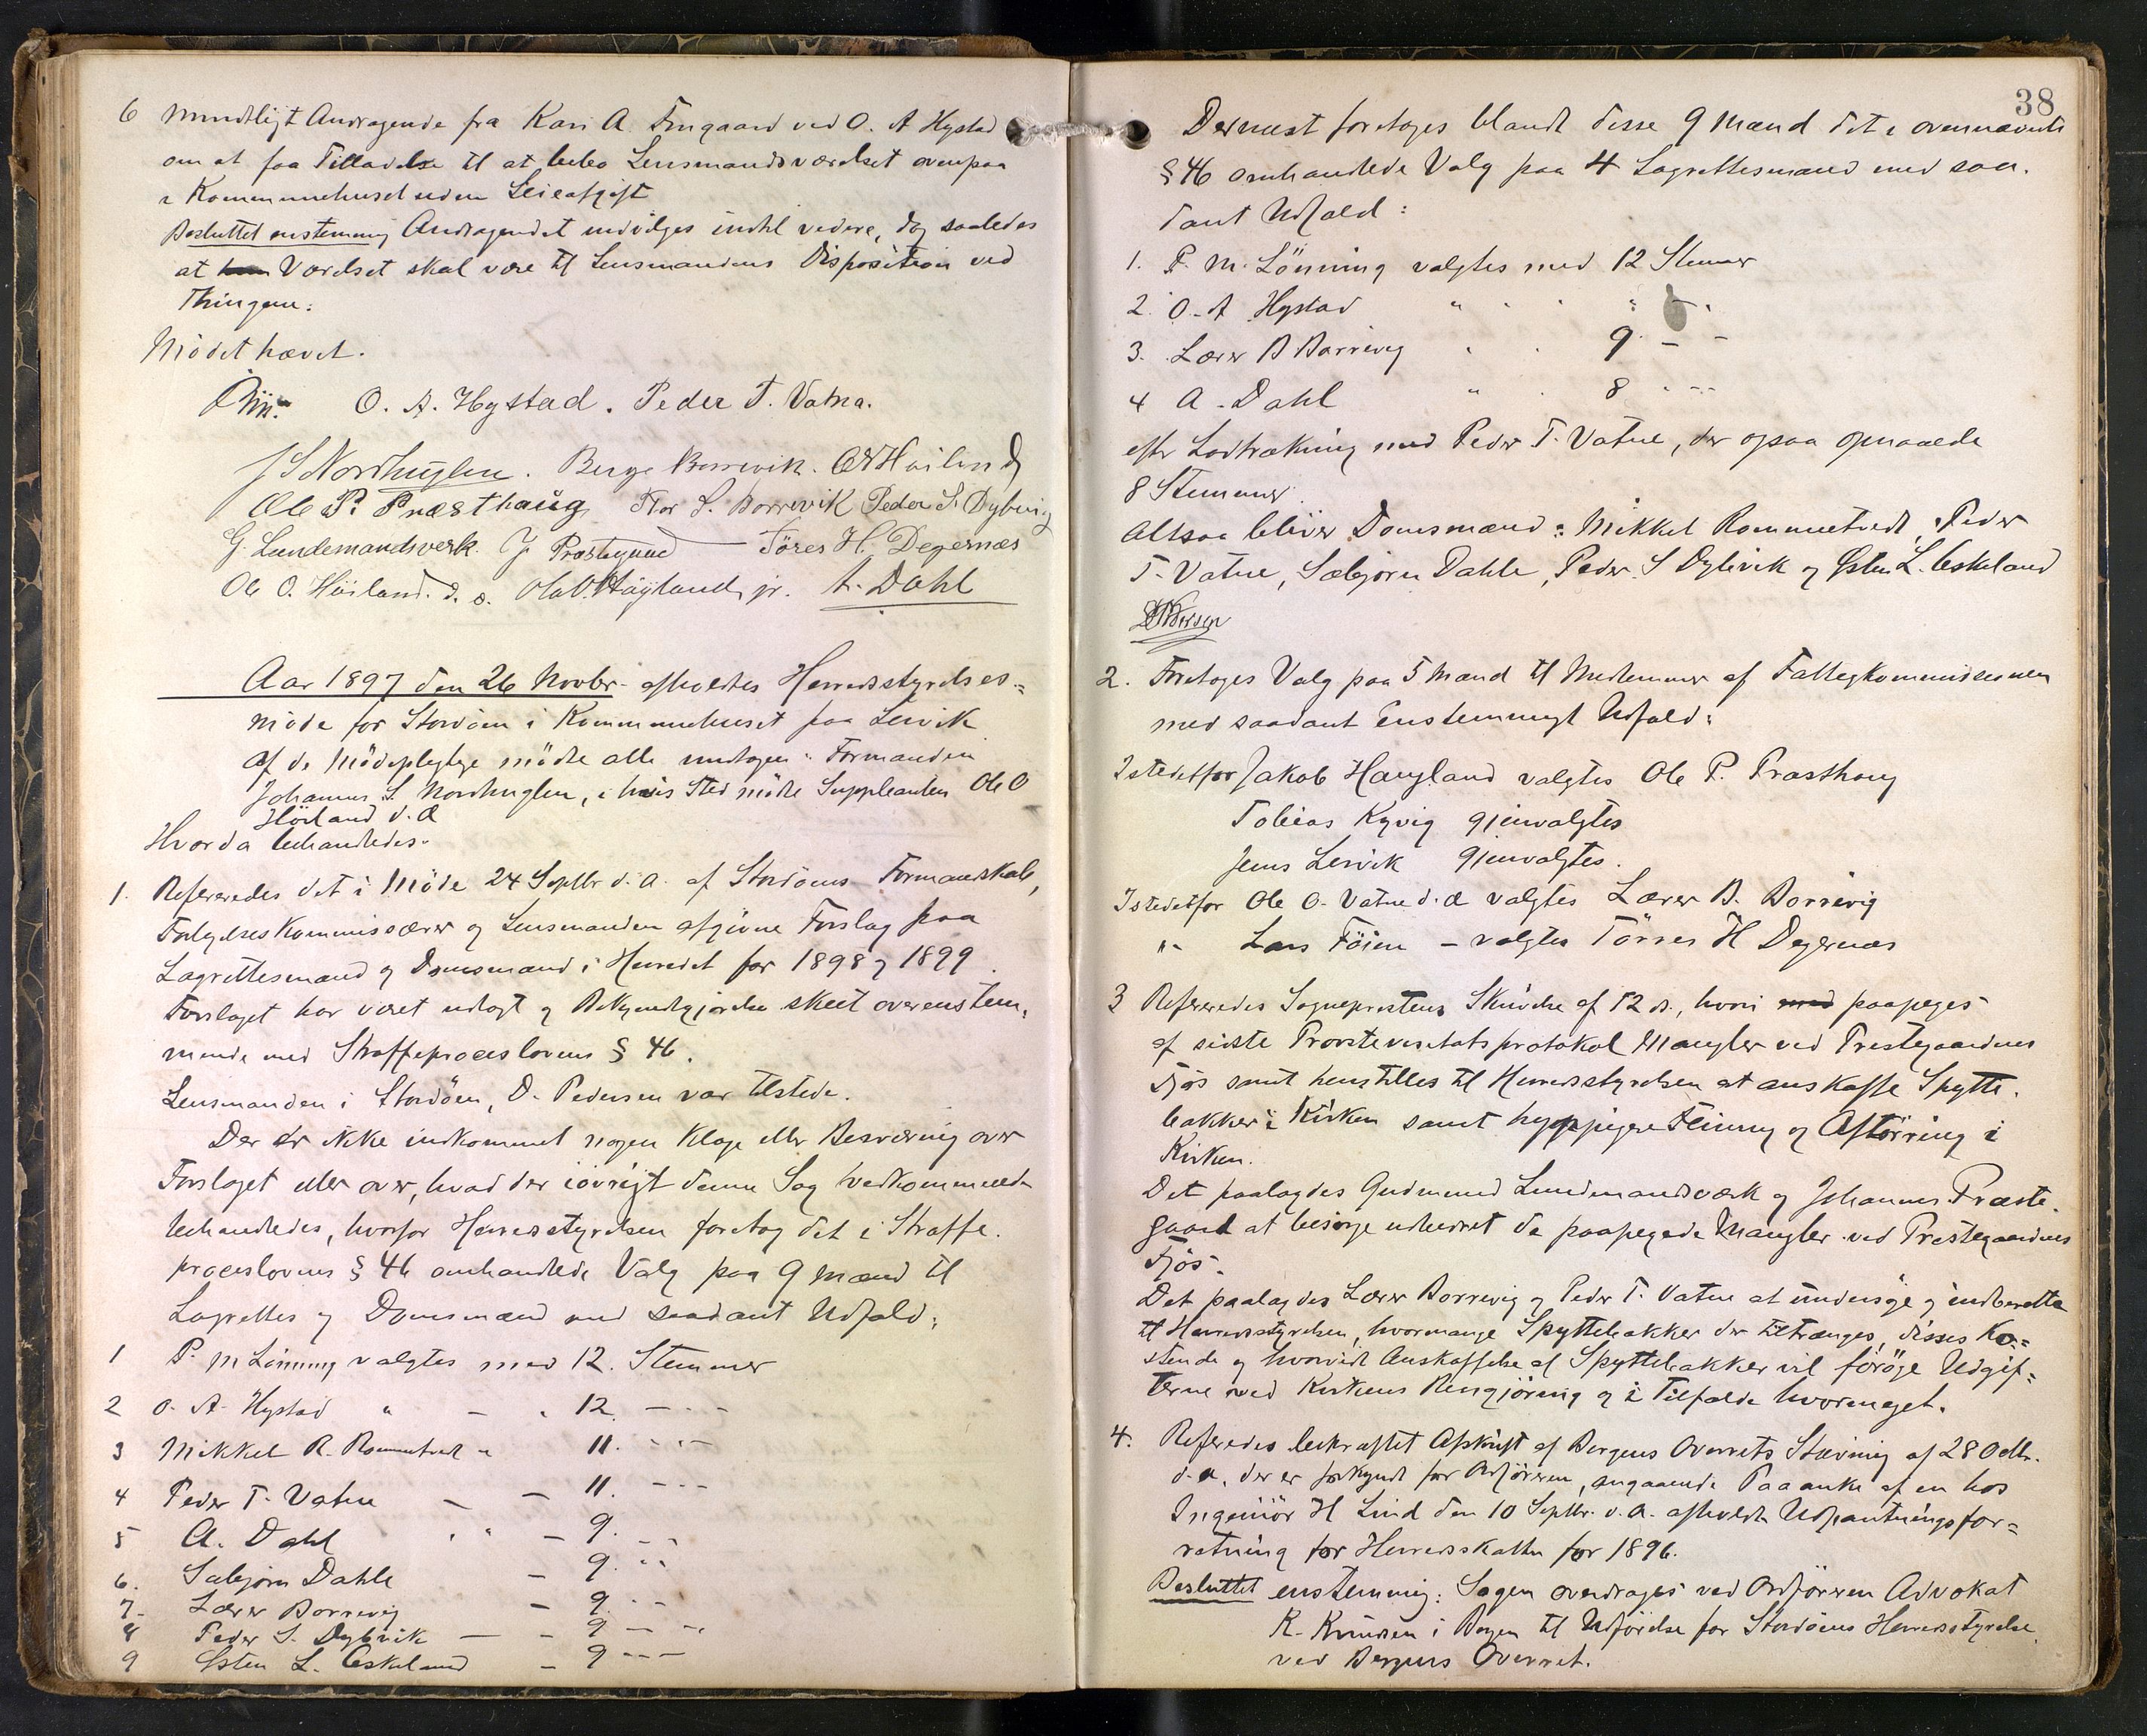 6 Mundtligt Andragende fra Kari A. Tingaard ved O. A Hystad
om at faa Tilladelse til at bebo Lensmandsværelset ovenpaa
i Kommunehuset uden Leieafgift
Besluttet enstemmig Andragendet indvilges indtil videre, dog saaledes
at Værelset skal være til Lensmandens Disposition ved
Thingene.
Mödet hævet.
O. A. Hystad. Peder T. Vatna.
J S Nordhuglen. Berge Borrevik. O Höiland
Ole P. Præsthaug Tor S. Borrevik Peder S. Dybvig
G. Lundemandsverk. J. Prestegaard Törres H. Degernæs
Ole O. Höiland. d. æ. Ola O. Höyland, jr. A. Dahl
Aar 1897 den 26 Novbr. afholdtes Herredsstyrelses=
möde for Stordöen i Kommunehuset paa Lervik
Af de Mödepligtige mödte alle undtagen Formanden
Johannes S. Nordhuglen, i hvis Sted mödte Suppleanten Ole O
Höiland d. Æ
Hvorda behandledes.
1. Refereredes det i Möde 24 Septbr d. a. af Stordöens Formandskab,
Forligelseskommissærer og Lensmanden afgivne Forslag paa
Lagrettesmænd og Domsmænd i Herredet for 1898 og 1899.
Forslaget har været udlagt og Bekjendtgjörelse skeet overenstem-
mende med Straffeproceslovens § 46.
Lensmanden i Stordöen, D. Pedersen var tilstede.
Der er ikke indkommet nogen Klage eller Besværing over
Forslaget eller over, hvad der iövrigt denne Sag vedkommende
behandledes, hvorfor Herredsstyrelsen foretog det i Straffe-
proceslovens § 46 omhandlede Valg paa 9 Mænd til
Lagrettes og Domsmænd med saadant Udfald:
1 P. M Lönning valgtes med 12. Stemmer
2 O. A. Hystad " - " 12. - - -
3 Mikkel R. Rommetvedt " 11. - - -
4 Peder T. Vatne - - 11. - - -
5 A. Dahl " " - 9. - -
6. Sæbjörn Dahle - 9. - -
7. Lærer Borrevig - 9. - -
8 Peder S. Dybvik - - 9 - -
9 Østen L. Eskeland - 9 - - -
38
Dernæst foretoges blandt disse 9 Mænd det i ovennævnte
§ 46 omhandlede Valg paa 4 Lagrettesmænd med saa-
dant Udfald:
1. P. M. Lönning valgtes med 12 Stemmer
2. O. A Hystad " " " " - "
3. Lærer B Borrevig " " 9. - -
4 A. Dahl " " 8 - - -
efter Lodtrækning med Peder T. Vatne, der ogsaa opnaaede
8 Stemmer.
Altsaa bliver Domsmænd: Mikkel Rommetvedt, Peder
T. Vatne, Sæbjörn Dahle, Peder S Dybvik og Østen L. Eskeland
2. Foretoges Valg paa 5 Mænd til Medlemmer af Fattigkommissionen
med saadant Enstemmigt Udfald:
Istedetfor Jakob Haugland valgtes Ole P. Præsthaug
Tobias Kyvig gjenvalgtes
Jens Lervik gjenvalgtes.
Istedetfor Ole O. Vatne d. æ valgtes Lærer B. Borrevig
" Lars Föien - valgtes Törres H Degernæs
3 Refereredes Sogneprestens Skrivelse af 12 ds., hvori paapeges
af sidste Provstevisitatsprotokol Mangler ved Prestegaardens
Fjös samt henstilles til Herredsstyrelsen at anskaffe Spytte-
bakker i Kirken samt hyppigere Feining og Aftörring i
Kirken.
Det paalagdes Gudmund Lundemandsværk og Johannes Præste-
gaard at besörge udbedret de paapegede Mangler ved Prestegaardens
Fjös.
Det paalagdes Lærer Borrevig og Peder T. Vatne at undersöge og indberette
til Herredsstyrelsen, hvormange Spyttebakker der tiltrænges, disses Ko=
stende og hvorvidt Anskaffelse af Spyttebakker vil foröge Udgif=
terne ved Kirkens Rengjöring og i Tilfælde hvormeget.
4. Referedes bekræftet Afskrift af Bergens Overrets Stævning af 28 Octbr.
d. a. der er forkyndt for Ordföreren, angaaende Paaanke af en hos
Ingeniör H Lind den 10 Septbr. d. a. afholdt Udpantningsfor=
retning for Herredsskatten for 1896.
Besluttet enstemmig: Sagen overdrages ved Ordföreren Advokat
K. Knudsen i Bergen til Udförelse for Stordöens Herredsstyrelse
ved Bergens Overret.